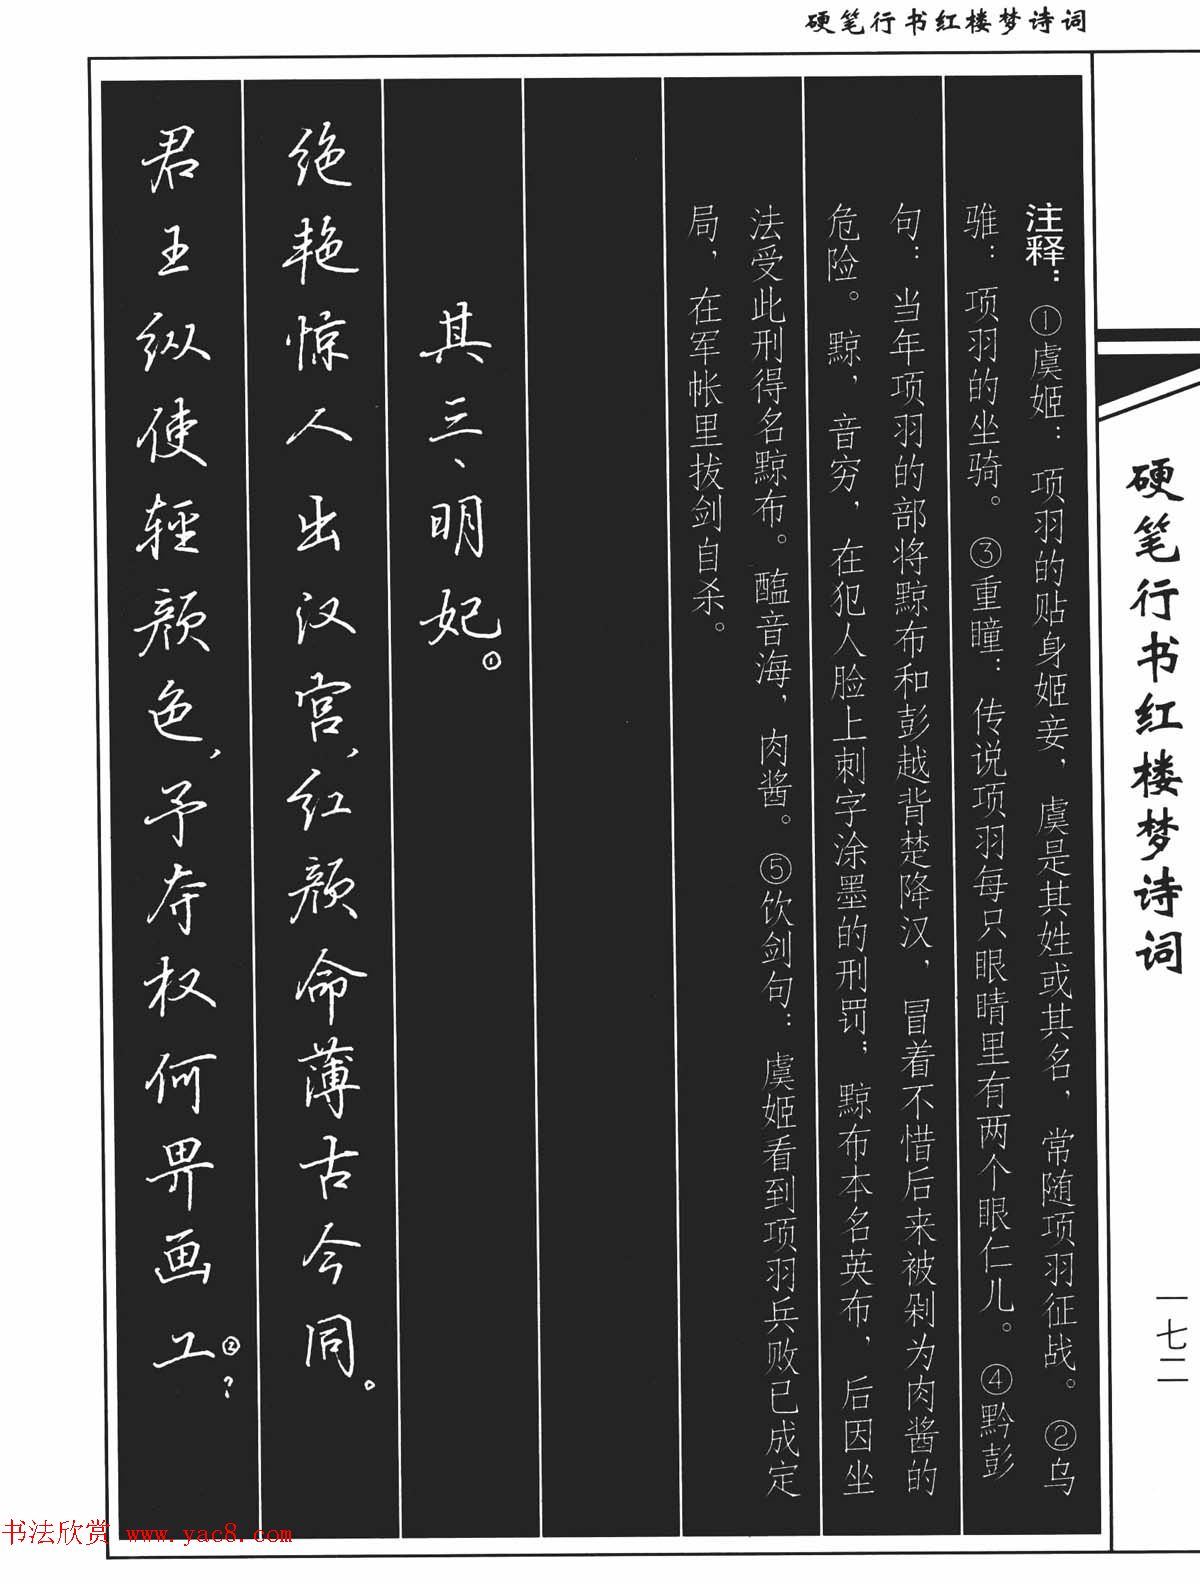 硬笔行书红楼梦诗词
硬笔行书红楼梦诗词
一七二
注释：①虞姬：项羽的贴身姬妾，虞是其姓或其名，常随项羽征战。②乌
骓：项羽的坐骑。③重瞳：传说项羽每只眼睛里有两个眼仁儿。④黔彭
句：当年项羽的部将黥布和彭越背楚降汉，冒着不惜后来被剁为肉酱的
危险。黥，音穷，在犯人脸上刺字涂墨的刑罚；黥布本名英布，后因坐
法受此刑得名黥布。醢音海，肉酱。⑤饮剑句：虞姬看到项羽兵败已成定
局，在军帐里拔剑自杀。
其三、明妃。①
绝艳惊人出汉宫，红颜命薄古今同。
君王纵使轻颜色，予夺权何畀画工②？
书法欣赏 www.yac8.com